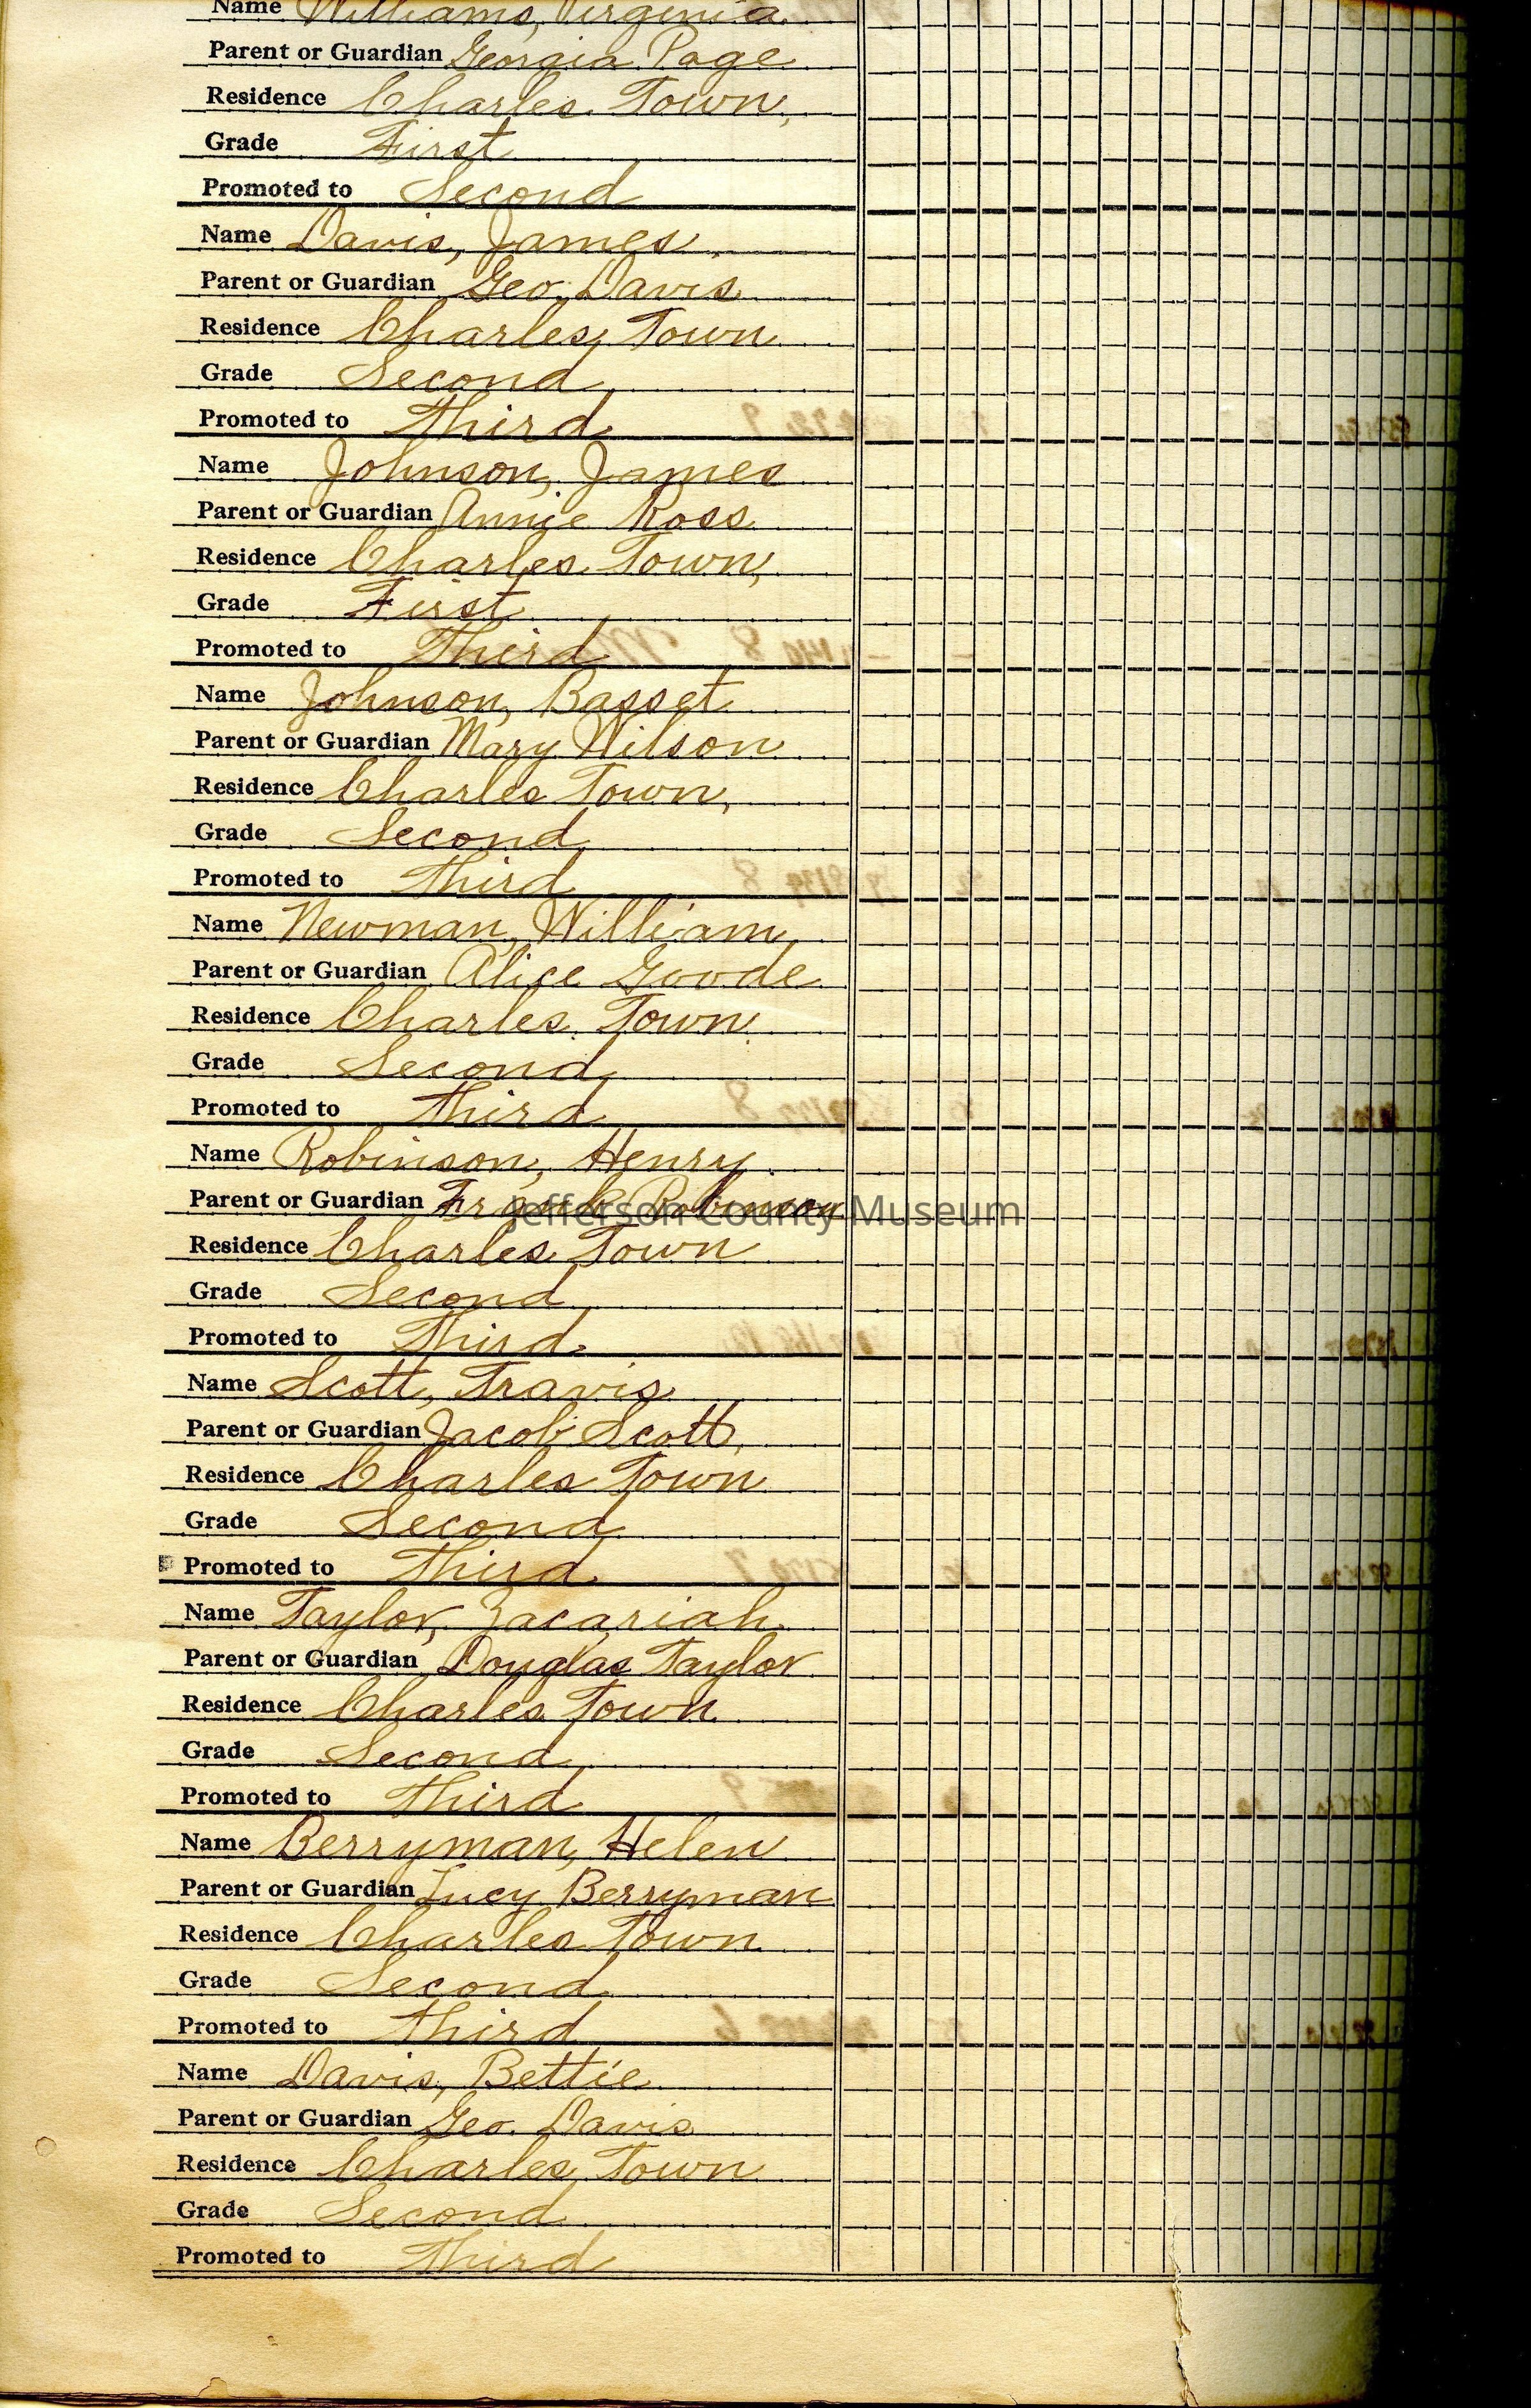 Name Williams, Virginia
Parent or Guardian Georgia Page
Residence Charles Town,
Grade First
Promoted to Second
Name Davis, James
Parent or Guardian Geo. Davis
Residence Charles Town
Grade Second
Promoted to Third
Name Johnson, James
Parent or Guardian Annie Ross
Residence Charles Town,
Grade First
Promoted to Third
Name Johnson, Basset
Parent or Guardian Mary Wilson
Residence Charles Town,
Grade Second
Promoted to Third
Name Newman, William
Parent or Guardian Alice Goode
Residence Charles Town
Grade Second
Promoted to Third
Name Robinson, Henry
Parent or Guardian Frank Robinson
Jefferson County Museum
Residence Charles Town
Grade Second
Promoted to Third
Name Scott, Travis
Parent or Guardian Jacob Scott,
Residence Charles Town
Grade Second
Promoted to Third
Name Taylor, Zacariah
Parent or Guardian Douglas Taylor
Residence Charles Town
Grade Second
Promoted to Third
Name Berryman, Helen
Parent or Guardian Lucy Berryman
Residence Charles Town
Grade Second
Promoted to Third
Name Davis, Bettie
Parent or Guardian Geo. Davis
Residence Charles Town
Grade Second
Promoted to Third